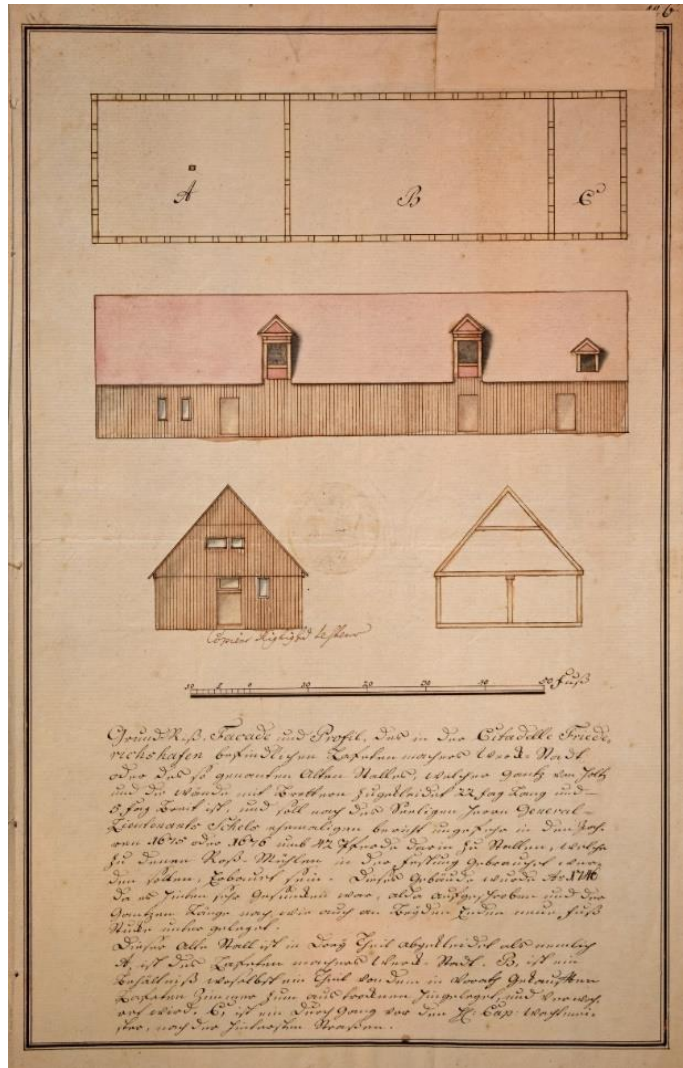 6
A
B
C
Copiert Richtig
10 5 0 10 20 30 40 50 Fuß
Grund-Riß, Facade und Profil, des in der Citadelle Friede-
richshafen befindlichen Lafeten machers Werck-Stadt
oder des so genanten Alten Stalles, welcher gantz von Holtz
und die Wände mit Brettern zugekleidet 22 fag Lang und
5 fag Breit ist, und soll nach des Seeligen Herrn General-
Lieutenants Schels ehemaligen bericht ungefehr in den Jah-
ren 1675 oder 1676 umb 42 Pferde darin zu Stallen, welche
zu denen Roß-Mühlen in der Festung Gebrauchet wer-
den solten, Erbauet sein. Dieses Gebäude wurde Ao 1746
da es hinten sehr Gesuncken war, alda aufgeschroben und der
Gantzen Länge nach, wie auch an Beyden Enden neue fuß
Stücke unter geleget.
Dieser Alte Stall ist in Drey Theil abgekleidet als nemlich
A, ist des Lafeten machers Werck-Stadt. B, ist ein
Behältniß woselbst ein Theil von dem in Vorath Gekauften
Lafeten Zimmer zum aus trocknen hingeleget, und Verwah-
ret wird. C, ist ein Durch Gang vor den H. Cap. Wachtmei-
ster, nach der hintersten Straßen.